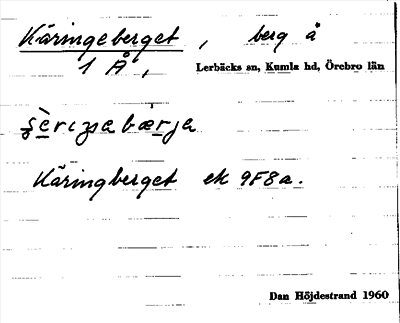 Käringeberget, berg å
1 Å, Lerbäcks sn, Kumla hd, Örebro län
Käringberget ek 9F8a.
Dan Höjdestrand 1960